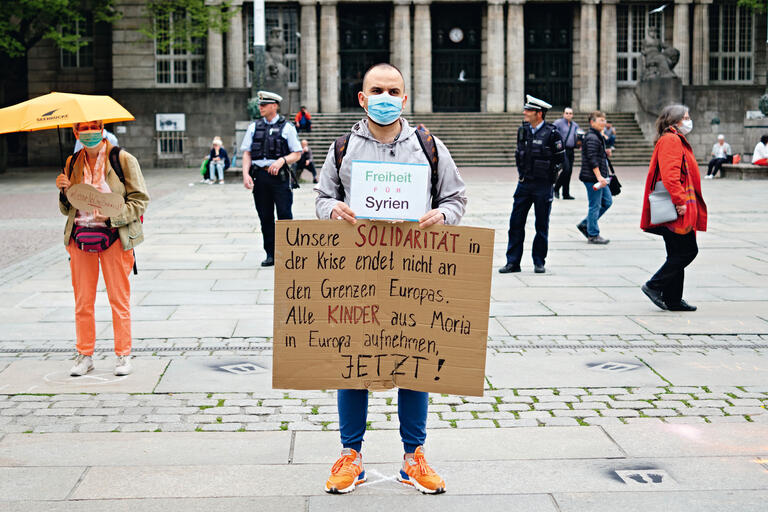 SEEBRÜCKE
Freiheit
FÜR
Syrien
Unsere SOLIDARITÄT in
der Krise endet nicht an
den Grenzen Europas.
Alle KINDER aus Moria
in Europa aufnehmen,
JETZT!